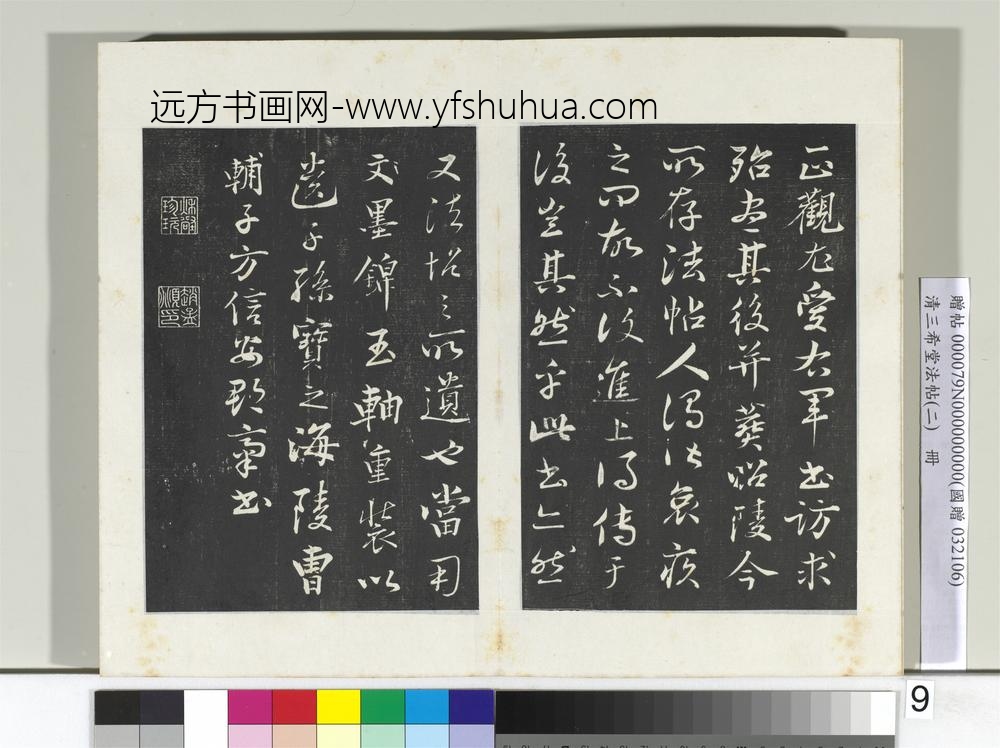 远方书画网-www.yfshuhua.com
正觀尤愛右軍書訪求
殆盡其後并葬昭陵今
所存法帖人得哀疾
之問故不復進上得傳于
後豈其然乎此書亦然
又法帖之所遺也當用
墨錦玉軸重裝以
遺子孫寶之海陵曹
輔子方信安郡齋書
贈帖 000079N000000000(國贈 032106)
清三希堂法帖(二) 冊
9